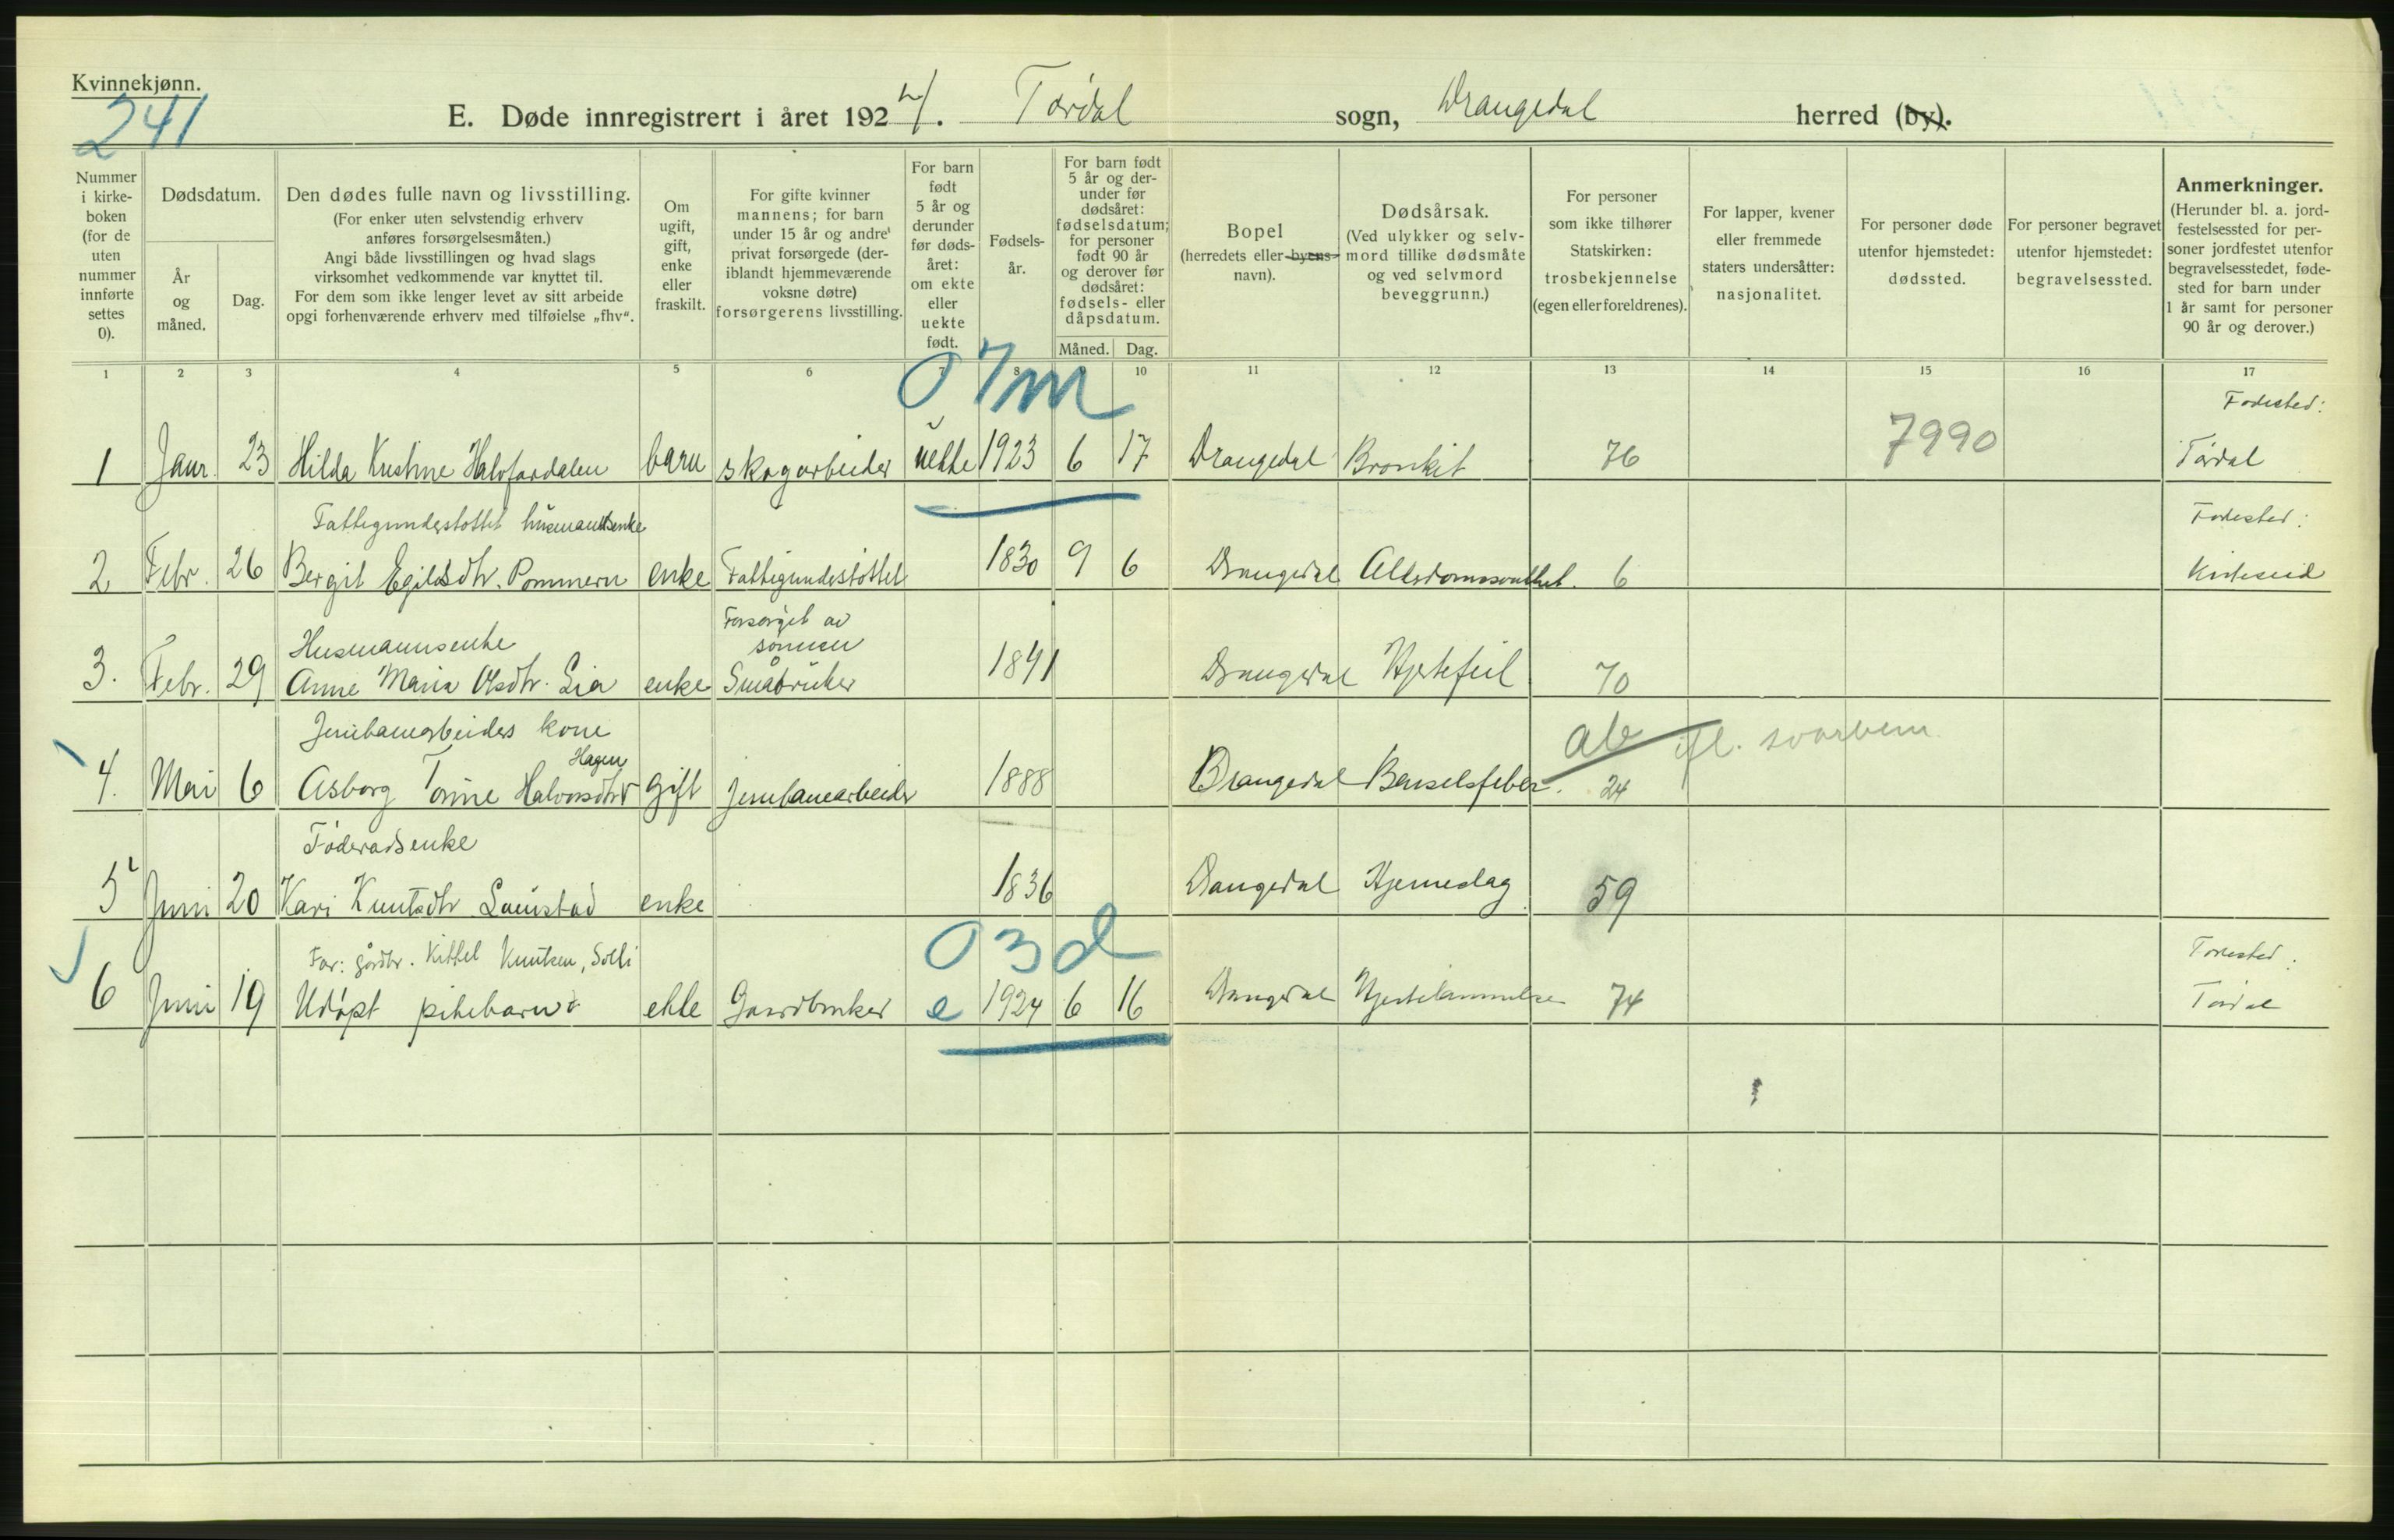 Kvinnekjønn.
241
E. Døde innregistrert i året 1924. Tørdal sogn, Drangedal herred (by).
Nummer i kirkeboken (for de uten nummer innførte settes 0).
Dødsdatum.
År og måned.
Dag.
Den dødes fulle navn og livsstilling.
(For enker uten selvstendig erhverv anføres forsørgelsesmåten.)
Angi både livsstillingen og hvad slags virksomhet vedkommende var knyttet til.
For dem som ikke lenger levet av sitt arbeide opgi forhenværende erhverv med tilføielse „fhv“.
Om ugift, gift, enke eller fraskilt.
For gifte kvinner mannens; for barn under 15 år og andre privat forsørgede (deriblandt hjemmeværende voksne døtre) forsørgerens livsstilling.
For barn født 5 år og derunder før dødsåret: om ekte eller uekte født.
Fødselsår.
For barn født 5 år og derunder før dødsåret: fødselsdatum; for personer født 90 år og derover før dødsåret: fødsels- eller dåpsdatum.
Måned. Dag.
Bopel (herredets eller byens navn).
Dødsårsak.
(Ved ulykker og selvmord tillike dødsmåte og ved selvmord beveggrunn.)
For personer som ikke tilhører Statskirken: trosbekjennelse (egen eller foreldrenes).
For lapper, kvener eller fremmede staters undersåtter: nasjonalitet.
For personer døde utenfor hjemstedet: dødssted.
For personer begravet utenfor hjemstedet: begravelsessted.
Anmerkninger.
(Herunder bl. a. jordfestelsessted for personer jordfestet utenfor begravelsesstedet, fødested for barn under 1 år samt for personer 90 år og derover.)
1 2 3 4 5 6 7 8 9 10 11 12 13 14 15 16 17
0 7m
Fødested:
1 Janr. 23 Hilda Kristine Halvfardalen barn skogarbeider uekte 1923 6 17 Drangedal Bronkit 76 7990 Tørdal
Fattigunderstøttet husmandsenke
Fødested:
2 Febr. 26 Bergit Egilsdtr. Pommern enke Fattigunderstøttet 1830 9 6 Drangedal Alderdomssvakhet. 6 Kviteseid
Husmannsenke
Forsørget av sønnen
3. Febr. 29 Anne Maria Olsdtr. Lia enke Småbruker 1841 Drangedal Hjertefeil 70
Jernbanearbeiders kone
Hagen
ab ifl. svarbem.
4. Mai 6 Asborg Tonne Halvorsdtr gift jernbanearbeider 1888 Drangedal Barselsfeber. 24
Føderådsenke
5 Juni 20 Kari Knutsdtr enke 1836 Drangedal Hjerneslag 59
0 3d
Far: gårdbr. Kittel Knutsen, Solli
Fødested:
6 Juni 19 Udøpt pikebarn ekte Gaardbruker e 1924 6 16 Drangedal Hjertelammelse 74 Tørdal